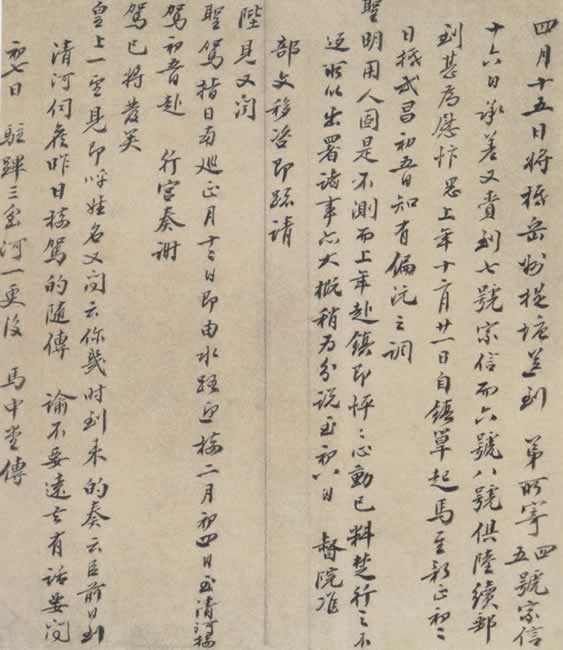 四月十五日將抵岳州從塘遞到　第所寄四五號家信
十六日承差又賫到七號家信而六號八號俱陸續郵
到甚為慰忭愚上年十二月廿一日自鎮草起馬至新正初二
日抵武昌初五日知有偏沅之調
聖明用人固是不測而上年赴鎮即怦怦心動已料楚行之不
返所以出署諸事亦大概稍為分說至初八日　督院准
部文移咨即疏請
陛見又聞
聖駕指日南巡正月十二日即由水路迎接二月初四日至清河接
駕初五日赴　行宮奏謝
駕已將發矣
皇上一望見即呼姓名又問云你幾時到來的奏云臣前日到
清河伺候昨日接駕的隨傳　諭不要遠去有話要問
初七日　駐蹕三岔河一更後　馬中堂傳